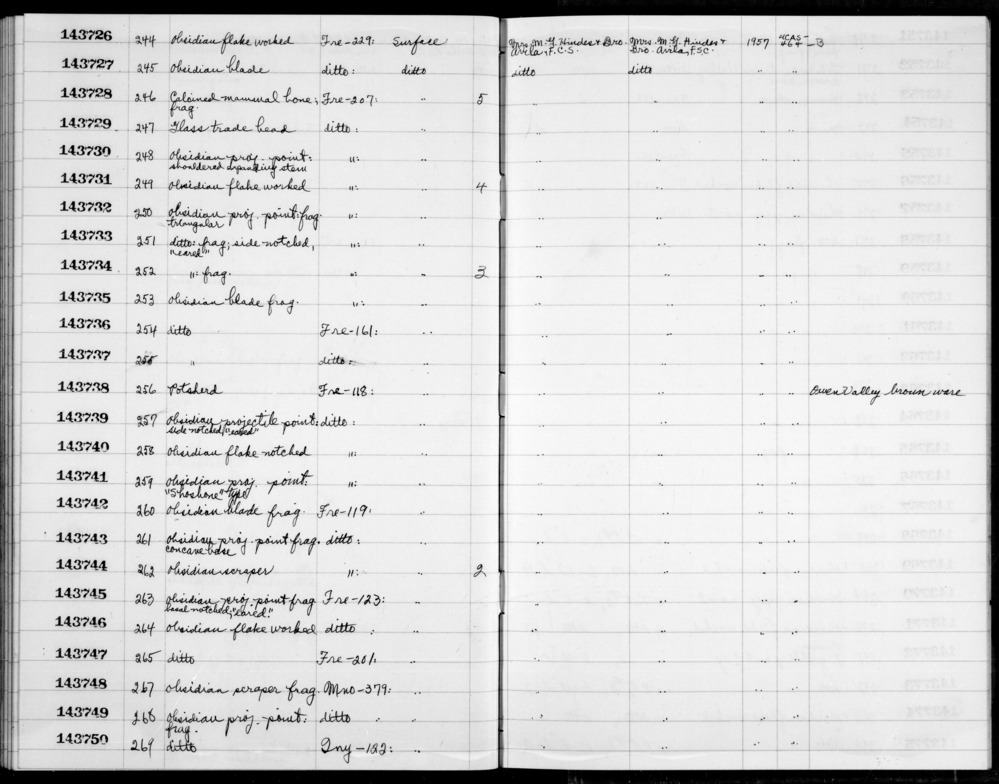 143726 244 Obsidian flake worked Fre-229: Surface Mrs. M. G. Hindes + Bro. Mrs. M. G. Hindes + 1957 UCAS -B
Avila, F.C.S. Bro. Avila, F.S.C. 264
143727 245 Obsidian blade ditto: ditto ditto ditto " "
143728 246 Calcined mammal bone; Fre-207: " 5 " " " "
frag.
143729 247 Glass trade bead ditto: " " " " "
143730 248 Obsidian proj. point: ": " " " " "
shouldered expanding stem
143731 249 Obsidian flake worked ": " 4 " " " "
143732 250 Obsidian proj. point: frag ": " " " " "
triangular
143733 251 ditto: frag; side-notched, ": " " " " "
"eared"
143734 252 ": frag. ": " 3 " " " "
143735 253 Obsidian blade frag. ": " " " " "
143736 254 ditto Fre-161: " " " " "
143737 255 " ditto: " " " " "
143738 256 Potsherd Fre-118: " " " " " Owen Valley brown ware
143739 257 Obsidian projectile point: ditto: " " " " "
side notched, "eared"
143740 258 Obsidian flake notched ": " " " " "
143741 259 Obsidian proj. point: ": " " " " "
"Shoshone" type
143742 260 Obsidian blade frag. Fre-119: " " " " "
143743 261 Obsidian proj. point frag. ditto: " " " " "
concave base
143744 262 Obsidian scraper ": " 2 " " " "
143745 263 Obsidian proj. point frag Fre-123: " " " " "
basal notched; "eared."
143746 264 Obsidian flake worked ditto : " " " " "
143747 265 ditto Fre-201: " " " " "
143748 267 Obsidian scraper frag. Mno-379: " " " " "
143749 268 Obsidian proj. point: ditto " " " " " "
frag.
143750 269 ditto Iny-122: " " " " "